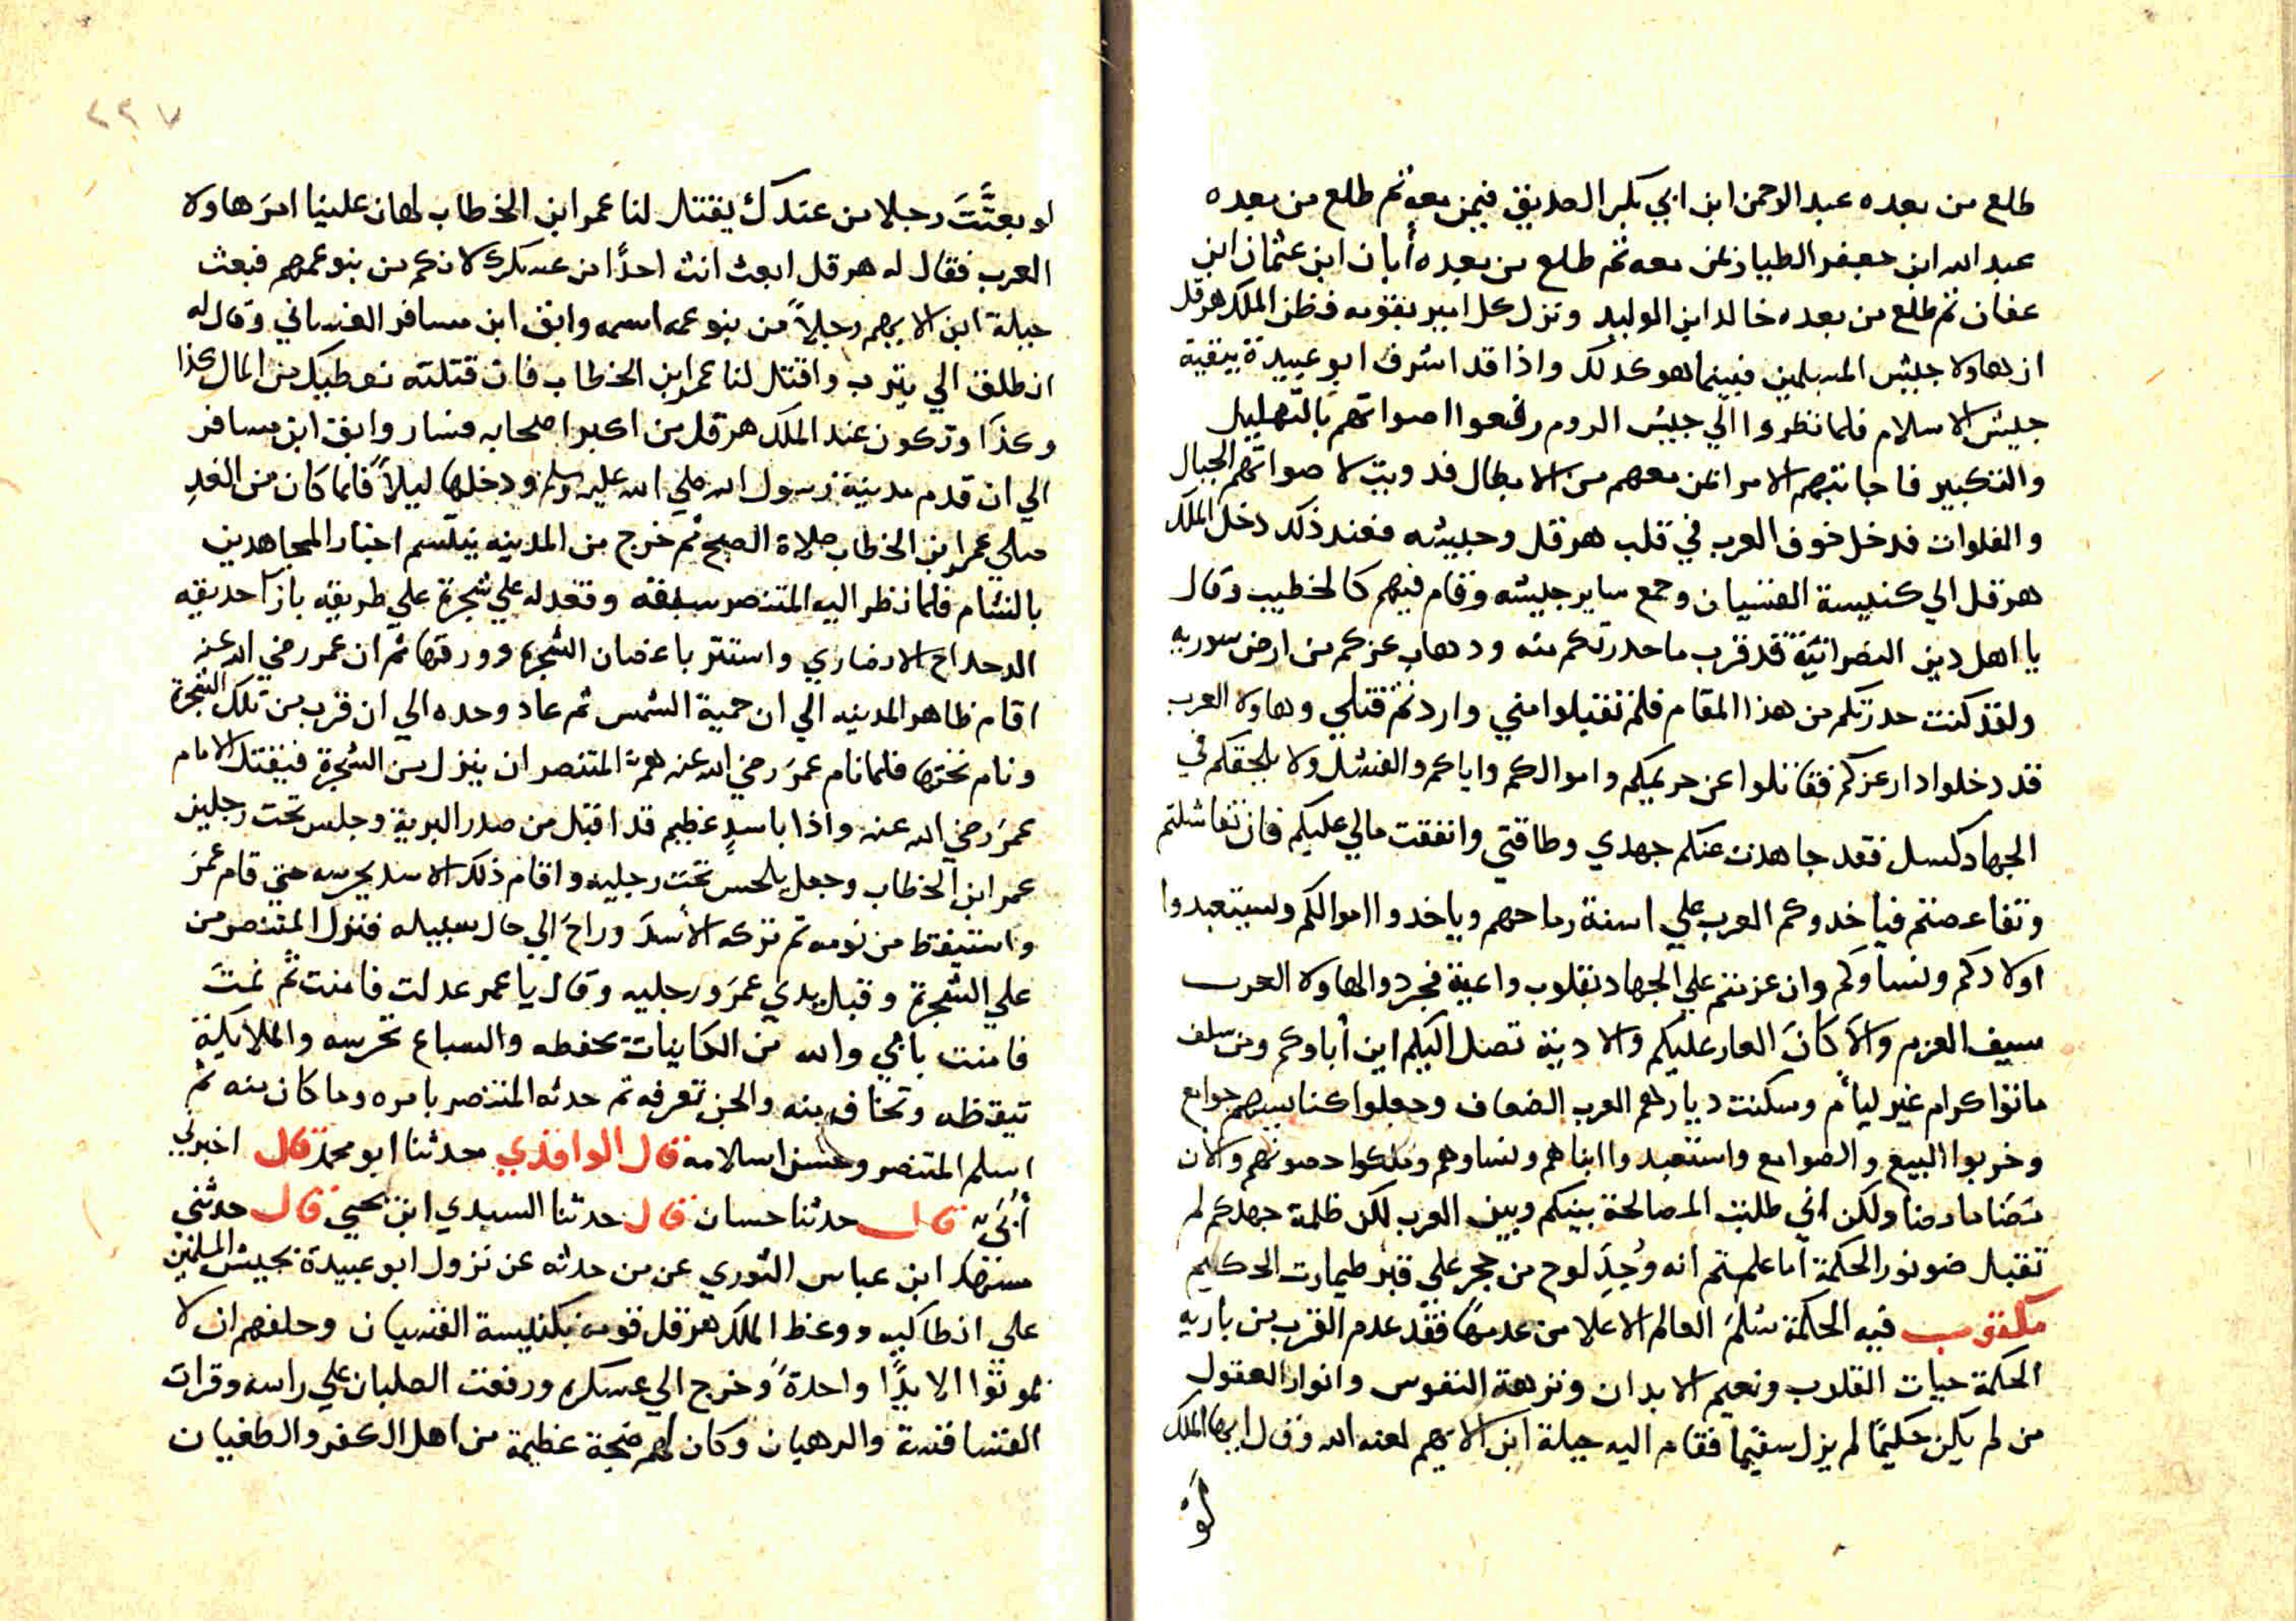 طلع من بعده عبد الرحمن ابن ابي بكر الصديق فيمن معه ثم طلع من بعده
عبد الله ابن جعفر الطيار بمن معه ثم طلع من بعده أبان ابن عثمان ابن
عفان ثم طلع من بعده خالد ابن الوليد ونزل كل امير بقومه فظن الملك هرقل
ان هاولا جيش المسلمين فبينما هو كذلك واذا قد اشرف ابو عبيدة ببقية
جيش الاسلام فلما نظروا الي جيش الروم رفعوا اصواتهم بالتهليل
والتكبير فاجابتهم الامرا بمن معهم من الابطال فدويت لاصواتهم الجبال
والفلوات فدخل خوف العرب في قلب هرقل وجيشه فعند ذلك دخل الملك
هرقل الي كنيسة القسيان وجمع ساير جيشه وقام فيهم كالخطيب وقال
يا اهل دين النصرانية قد قرب ما حدرتكم منه ودهاب عزكم من ارض سوريه
ولقد كنت حدرتكم من هذا المقام فلم تقبلوا مني واردتم قتلي وهاولا العرب
قد دخلوا دار عزكم فقاتلوا عن حريمكم واموالكم واياكم والفشل ولا يلحقكم في
الجهاد كسل فقد جاهدت عنكم جهدي وطاقتي وانفقت مالي عليكم فان تفاشلتم
وتقاعصتم فياخدوكم العرب علي اسنة رماحهم وياخدوا اموالكم ويستعبدوا
اولادكم ونساوكم وان عزمتم علي الجهاد بقلوب واعية فجردوا لهاولا العرب
سيف العزم والا كان العار عليكم والادية تصل اليكم اين أباوكم ومن سلف
ماتوا كرام غير ليأم وسكنت ديارهم العرب الضعاف وجعلوا كنايسهم جوامع
وخربوا البيع والصوامع واستعبدوا ابناهم ونساوهم وملكوا حصونهم والان
مضا ما مضا ولكن اني طلبت المصالحة بينكم وبين العرب لكن ظلمة جهلكم لم
تقبل ضو نور الحكمة اما علمتم انه وُجِدَ لوح من حجر علي قبر طيمارت الحكيم
مكتوب فيه الحكمة سُلم العالم الاعلا من عدمها فقد عدم القرب من باريه
الحكمة حيات القلوب ونعيم الابدان ونزهة النفوس وانوار العقول
من لم يكن حكيمًا لم يزل سقيما فقام اليه جبلة ابن الايهم لعنه الله وقال ايها الملك
لو
٢٣٧
لو بعثَّتَ رجلا من عندك يقتل لنا عمر ابن الخطاب لهان علينا امرَ هاولا
العرب فقال له هرقل ابعث انت احدًا من عسكرك لانكم من بنو عمهم فبعث
جبلة ابن الايهم رجلاً من بنو عمه اسمه واثق ابن مسافر الغساني وقال له
انطلق الي يترب واقتل لنا عمر ابن الخطاب فان قتلته نعطيك من المال كذا
وكذا وتكون عند الملك هرقل من اكبر اصحابه فسار واثق ابن مسافر
الي ان قدم مدينة رسول الله صلي الله عليه وسلم ودخلها ليلاً فلما كان من الغدِ
صلي عمر ابن الخطاب صلاة الصبح ثم خرج من المدينه يتنسم اخبار المجاهدين
بالشام فلما نظر اليه المتنصر سبقه وقعد له علي شجرة علي طريقه بازا حديقه
الدحداح الانصاري واستتر باغصان الشجره وورقها ثم ان عمر رضي الله عنه
اقام ظاهر المدينه الي ان حمية الشمس ثم عاد وحده الي ان قرب من تلك الشجرة
ونام تحتها فلما نام عمر رضي الله عنه همَّ المتنصر ان ينزل من الشجرة فيقتل الامام
عمرَ رضي الله عنه واذا باسدٍ عظيم قد اقبل من صدر البرية وجلس تحت رجلين
عمر ابن الخطاب وجعل يلحس تحت رجليه واقام ذلك الاسد يحرسه حتي قام عمرَ
واستيقظ من نومه ثم تركه الأسدَ وراحَ الي حال سبيله فنزل المتنصر من
علي الشجرة وقبل يدي عمرَ ورجليه وقال يا عمر عدلت فامنت ثم نمتَ
فامنت بابي والله من الكاينات تحفظه والسباع تحرسه والملايكة
تيقظه وتخاف منه والجن تعرفه ثم حدثه المتنصر بامره وما كان منه ثم
اسلم المتنصر وحسن اسلامه قال الواقدي حدثنا ابو محمد قال اخبرني
أُبَيّ قال حدثنا حسان قال حدثنا السيدي ابن يحيي قال حدثني
ابن عباس الثوري عن من حدثه عن نزول ابو عبيدة بجيش المسلمين
علي انطاكيه ووعظ الملك هرقل قومه بكنيسة القسيان وحلفهم ان لا
يموتوا الا يدًا واحدةً وخرج الي عسكره ورفعت الصلبان علي راسه وقرات
القساقسة والرهبان وكان لهم ضجة عظيمة من اهل الكفر والطغيان